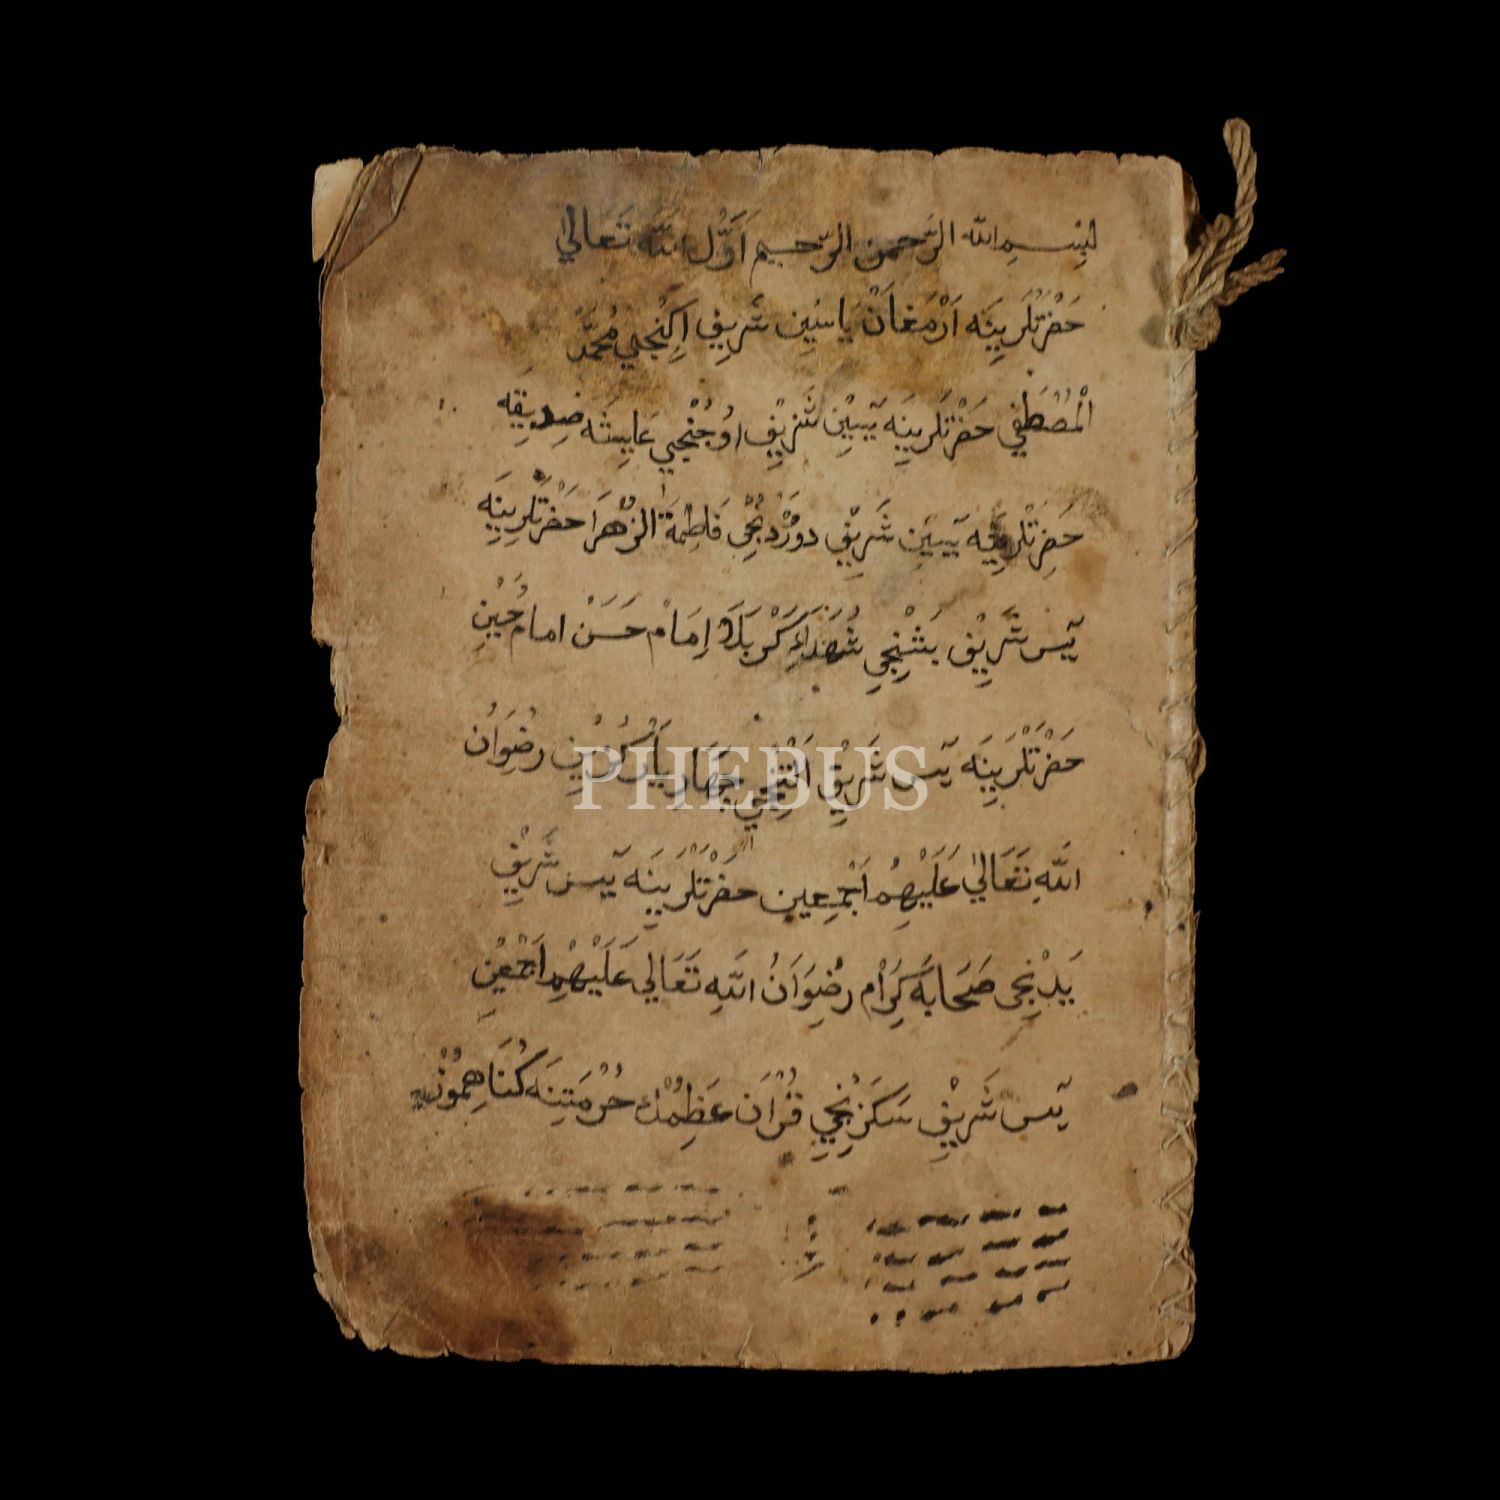 بسم الله الرحمن الرحيم اَوَّل الله تَعَالىٰ
حَضْرَتْلَرِينَه اَرْمَغَانْ يَاسِين شَرِيفِ اِكِنْجِي مُحَمَّدْ
الْمُصْطَفٰى حَضْرَتْلَرِينَه يٓسِينْ شَرِيفْ اوُچُنْجِي عَايِشَه صِدِيقَه
حَضْرَتْلَرِينَه يٓسِين شَرِيفْ دوُرْدُنْجِى فَاطِمَةَ الزَّهْرَا حَضْرَتْلَرِينَه
يٓس شَرِيفْ بَشِنْجِي شُهَدَاءِ كَرْبَلَا اِمَامْ حَسَنْ امام حُسَيْن
حَضْرَتْلَرِينَه يٓس شَرِيفْ اَلْتِنْجِي چهَار يَارْ كُزِين رِضْوَانُ
اللّٰهِ تَعَالىٰ عَلَيْهِمْ اَجْمَعِين حَضْرَتْلَرِينَه يٓس شَرِيفْ
يَدِنْجِى صَحَابَهٔ كِرَامْ رِضْوَانُ اللّٰهِ تَعَالىٰ عَلَيْهِمْ اَجْمَعِين
يٓس شَرِيفْ سَكِزِنْجِي قُرْاَن عَظِمُكْ حُرْمَتِنَه كُنَاهِمُوزْ
PHEBUS